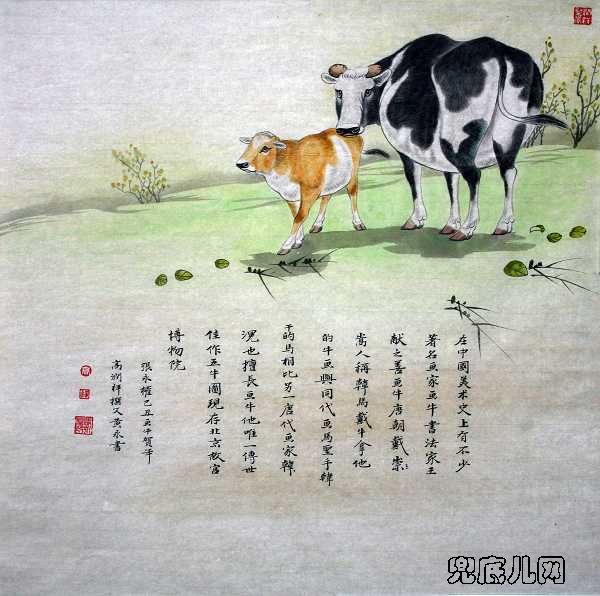 在中國美术史上有不少
著名画家画牛書法家王
献之善画牛唐朝戴崇
嵩人稱韓馬戴牛拿他
的牛画與同代画馬聖手韓
干的馬相比另一唐代画家韓
滉也擅長画牛他唯一傳世
佳作五牛圖現存北京故宫
博物院
張永權己丑画牛賀年
高潤祥撰文黄永書
兜底儿网